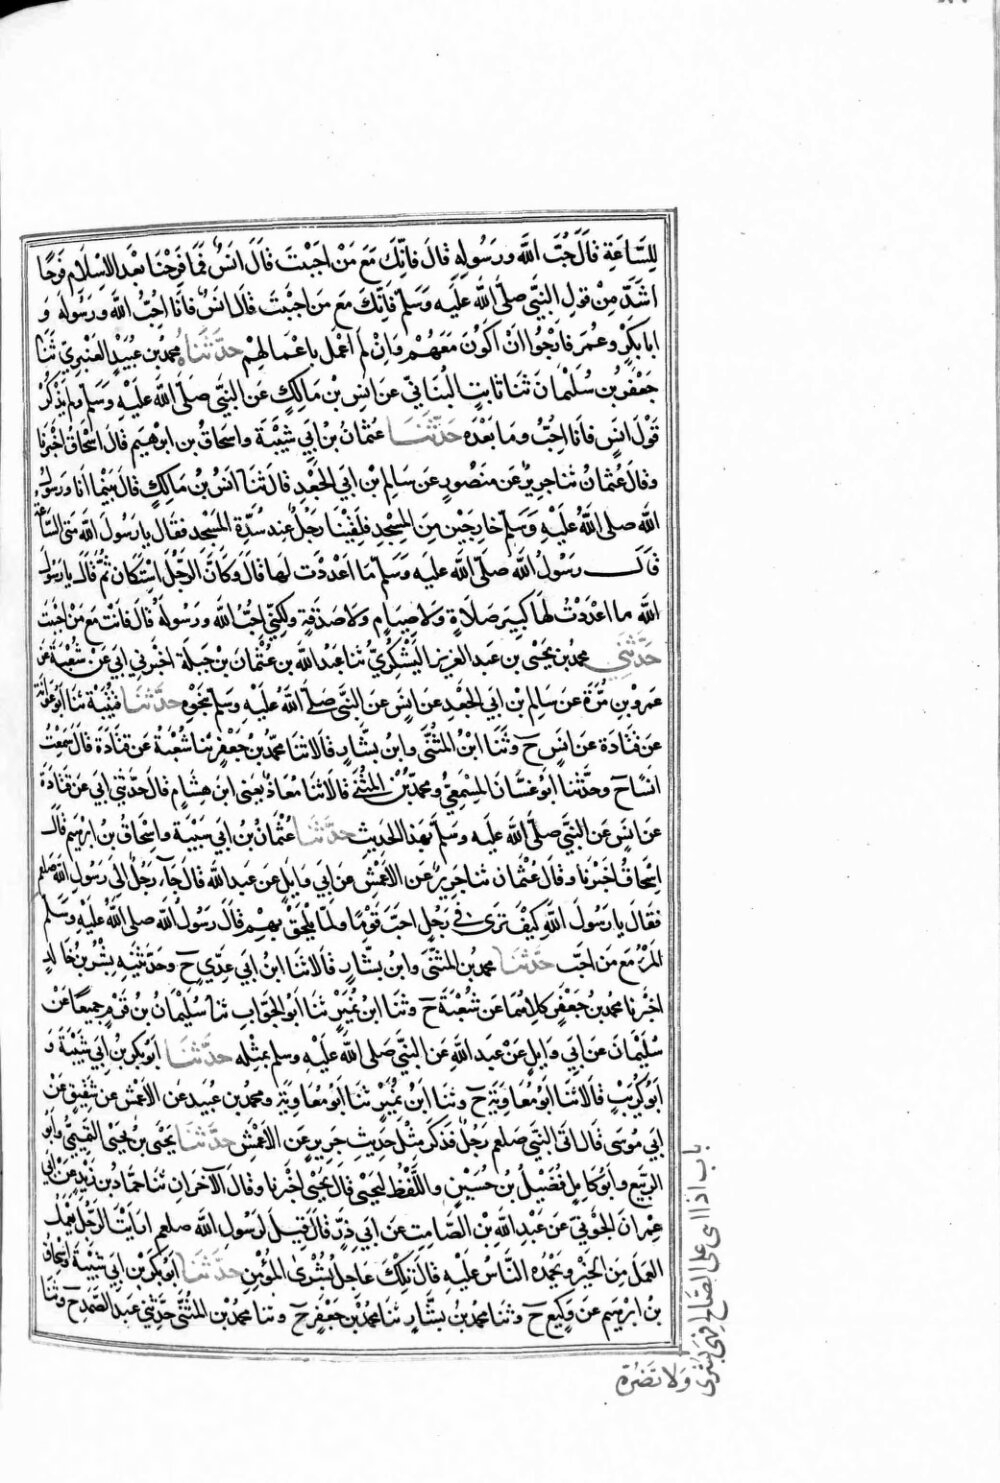 للساعة قال حب الله ورسوله قال فانك مع من احببت قال انس فما فرحنا بعد الاسلام فرحا
اشد من قول النبي صلى الله عليه وسلم فانك مع من احببت قال انس فانا احب الله ورسوله و
ابا بكر وعمر فارجوا ان اكون معهم وان لم اعمل باعمالهم حدثناه محمد بن عبيد العنبري ثنا
جعفر بن سليمان ثنا ثابت البناني عن انس بن مالك عن النبي صلى الله عليه وسلم ولم يذكر
قول انس فانا احب وما بعده حدثنا عثمان بن ابي شيبة واسحاق بن ابرهيم قال اسحاق اخبرنا
وقال عثمان ثنا جرير عن منصور عن سالم بن ابي الجعد قال ثنا انس بن مالك قال بينما انا ورسول
الله صلى الله عليه وسلم خارجين من المسجد فلقينا رجل عند سدة المسجد فقال يا رسول الله متى الساعة
قال رسول الله صلى الله عليه وسلم ما اعددت لها قال وكان الرجل استكان ثم قال يا رسول
الله ما اعددت لها كبير صلاة ولا صيام ولا صدقة ولكني احب الله ورسوله قال فانت مع من احببت
حدثني محمد بن يحيى بن عبد العزيز اليشكري ثنا عبد الله بن عثمان بن جبلة اخبرني ابي عن شعبة عن
عمرو بن مرة عن سالم بن ابي الجعد عن انس عن النبي صلى الله عليه وسلم بنحوه حدثنا قتيبة ثنا ابو عوانة
عن قتادة عن انس ح وثنا ابن المثنى وابن بشار قالا ثنا محمد بن جعفر ثنا شعبة عن قتادة قال سمعت
انسا ح وحدثنا ابو غسان المسمعي ومحمد بن المثنى قالا ثنا معاذ يعني ابن هشام قال حدثني ابي عن قتادة
عن انس عن النبي صلى الله عليه وسلم بهذا الحديث حدثنا عثمان بن ابي شيبة واسحاق بن ابرهيم قال
اسحاق اخبرنا وقال عثمان ثنا جرير عن الاعمش عن ابي وايل عن عبد الله قال جاء رجل الى رسول الله صلعم
فقال يا رسول الله كيف ترى في رجل احب قوما ولما يلحق بهم قال رسول الله صلى الله عليه وسلم
المرء مع من احب حدثنا محمد بن المثنى وابن بشار قالا ثنا ابن ابي عدي ح وحدثنيه بشر بن خالد
اخبرنا محمد بن جعفر كلاهما عن شعبة ح وثنا ابن نمير ثنا ابو الجواب ثنا سليمان بن قرم جميعا عن
سليمان عن ابي وايل عن عبد الله عن النبي صلى الله عليه وسلم بمثله حدثنا ابو بكر بن ابي شيبة و
ابو كريب قالا ثنا ابو معاوية ح وثنا ابن نمير ثنا ابو معاوية ومحمد بن عبيد عن الاعمش عن شقيق عن
ابي موسى قال اتى النبي صلعم رجل فذكر مثل حديث جرير عن الاعمش حدثنا يحيى بن يحيى التميمي وابو
الربيع وابو كامل فضيل بن حسين واللفظ ليحيى قال يحيى اخبرنا وقال الآخران ثنا حماد بن زيد عن ابي
عمران الجوني عن عبد الله بن الصامت عن ابي ذر قال قيل لرسول الله صلعم ارايت الرجل يعمل
العمل من الخير ويحمده الناس عليه قال تلك عاجل بشرى المؤمن حدثنا ابو بكر بن ابي شيبة واسحاق
بن ابرهيم عن وكيع ح وثنا محمد بن بشار ثنا محمد بن جعفر ح وثنا محمد بن المثنى حدثني عبد الصمد ح وثنا
باب اذا اثنى على الصالح فهي بشرى
ولا تضره